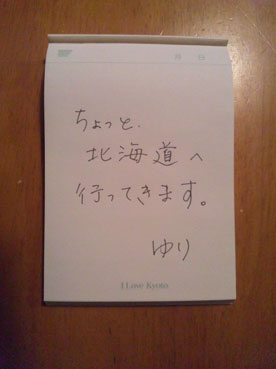 月 日
ちょっと、
北海道へ
行ってきます。
ゆり
I Love Kyoto